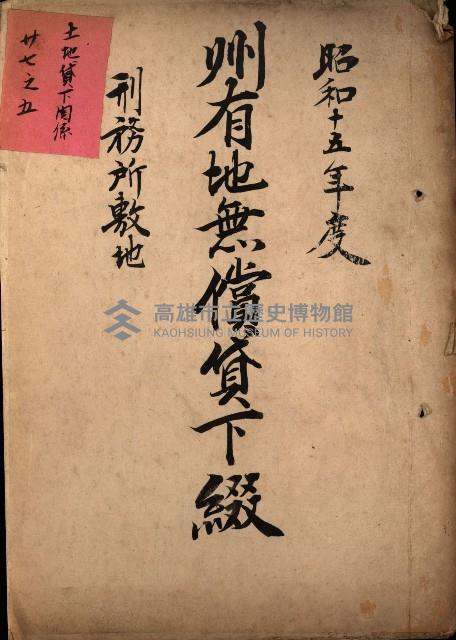 昭和十五年度
州有地無償貸下綴
刑務所敷地
土地貸下関係
廿七之五
高雄市立歷史博物館
KAOHSIUNG MUSEUM OF HISTORY